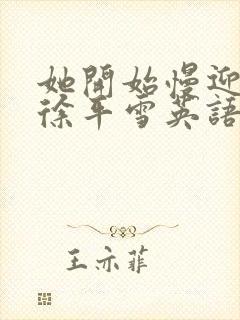 她開始慢迎
徐平雪英語
王亦菲